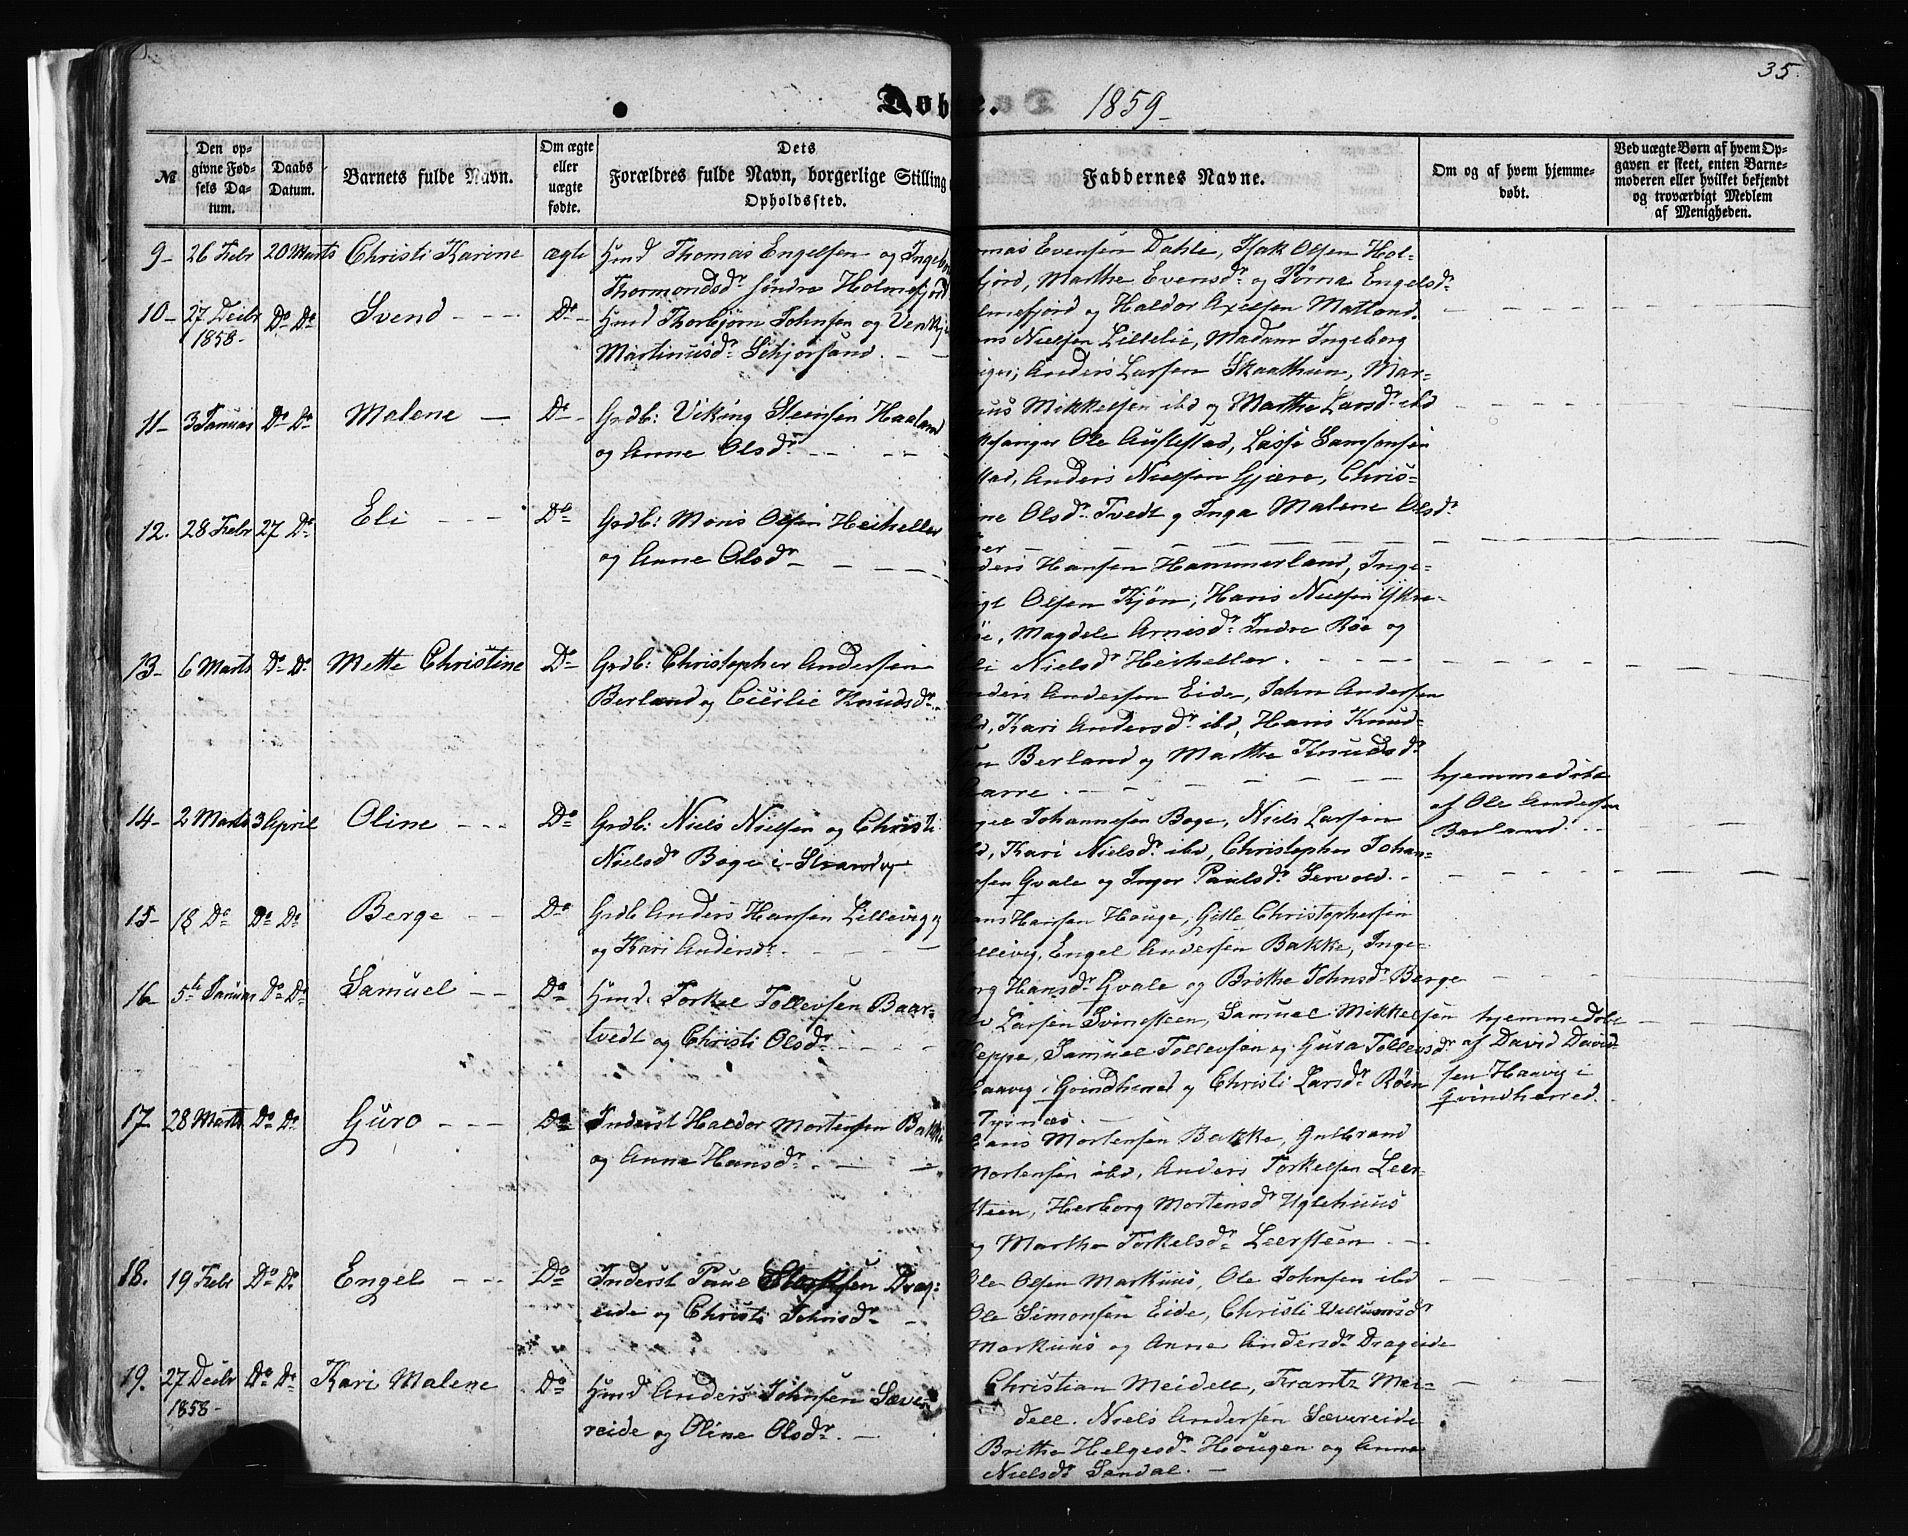 35.
Døbte. 1859
№
Den opgivne Fødsels Datum.
Daabs Datum.
Barnets fulde Navn.
Om ægte eller uægte fødte.
Dets Forældres fulde Navn, borgerlige Stilling Opholdssted.
Faddernes Navne.
Om og af hvem hjemmedøbt.
Ved uægte Børn af hvem Opgaven er skeet, enten Barnemoderen eller hvilket bekjendt og troværdigt Medlem af Menigheden.
9 26 Febr 20 Marts Christi Karine ægte Hmd Thomas Engelsen og Ingebor
Thormondsdr søndre Holmefjord
Evensen Dahle, Isak Olsen Hol-
fjord, Marthe Evensdr og Engelsdr
og Haldor Axelsen Matland.
10 27 Decbr 1858 Do Do Svend Do Hmd Thorbjørn Johnsen og
Martinusdr
Nielsen Lillelie, Madam Ingeborg
Anders Larsen Skaathun, Mar-
Mikkelsen ibd og Marthe Larsdr ibd
11 3 Januar Do Do Malene Do Grdb: Viking Steensen Haaland
og Anne Olsdr
Ole Austestad, Lasse Samsonsen
Anders Nielsen Gjære, Chris-
Olsdr Tvedt og Inga Malene Olsdr
12. 28 Febr 27 Do Eli Do Grdb: Mons Olsen
og Anne Olsdr
Hansen Hammerland, Inge-
Olsen Kjøn, Hans Nielsen Ytre
Røe, Magdele Arnesdr Indre Røe og
Nielsdr
13 6 Marts Do Do Mette Christine Do Grdb: Christopher Andersen
Berland og Cicilie Knudsdr
Andersen Eide, John Andersen
ibd, Kari Andersdr ibd, Hans Knud-
Berland og Marthe Knudsdr
hjemmedøbt
af Ole Andersen
Berland.
14 2 Marts 3 April Oline Do Grdb: Niels Nielsen og Christi
Nielsdr Boge i Strandvig
Johannesen Boge, Niels Larsen
ibd, Kari Nielsdr ibd, Christopher Johan-
Qvale og Inger Paulsdr
15 18 Do Do Do Berge Do Grdb Anders Hansen Lillevig
og Kari Andersdr
Hansen Houge, Gitle Christophersen
Lillevig, Engel Andersen Bakke, Inge-
borg Hansdr Qvale og Brithe Johnsdr Berge
16 5te Januar Do Do Samuel Do Hmd. Torkel Tollevsen Baar-
tvedt og Christi Olsdr
Larsen Svindsteen, Samuel Mikkelsen
Samuel Tollevsen og Gura Tollevsdr
Haavig i Qvindherred og Christi Larsdr Røen
Tysnæs
hjemmedøbt
af David David-
sen Haavig i
Qvindherred.
17 28 Marts Do Do Guro Do Inderst Haldor Mortensen Bakke
og Anne Hansdr
Hans Mortensen Bakke, Gulbrand
Mortensen ibd, Anders Torkelsen Leer-
steen, Herborg Mortensdr Uglehuus
og Marthe Torkelsdr Leersteen
18. 19 Febr Do Do Engel Do Inderst Paul Drag-
eide og Christi Johnsdr
Ole Olsen Markuus, Ole Johnsen ibd
Ole Simonsen Eide, Christi Villumsdr
Markuus og Anne Andersdr Drageide
19. 27 Decbr 1858 Do Do Kari Malene Do Hmd Anders Johnsen Sæve-
reide og Oline Olsdr.
Christian Meidell, Frantz Mei-
dell. Niels Andersen Sævereide
Brithe Helgesdr Hougen og Anna
Nielsdr Sandal.